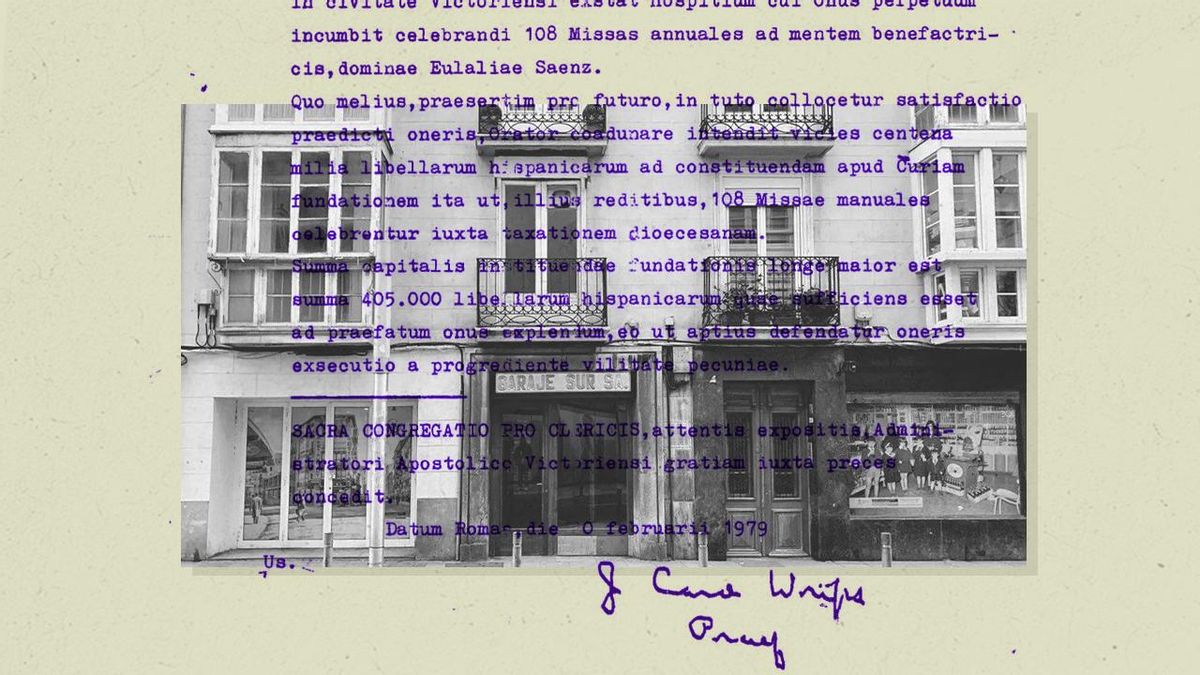 In civitate Victoriensi exstat hospitium cui onus perpetuum
incumbit celebrandi 108 Missas annuales ad mentem benefactri-
cis,dominae Eulaliae Saenz.
Quo melius,praesertim pro futuro,in tuto collocetur satisfactio
praedicti oneris,Orator coadunare intendit vicies centena
milia libellarum hispanicarum ad constituendam apud Curiam
fundationem ita ut,illius reditibus,108 Missae manuales
celebrentur iuxta taxationem dioecesanam.
Summa capitalis instituendae fundationis longe maior est
summa 405.000 libellarum hispanicarum quae sufficiens esset
ad praefatum onus explendum,eo ut aptius defendatur oneris
exsecutio a progrediente vilitate pecuniae.
GARAJE SUR SA.
SACRA CONGREGATIO PRO CLERICIS,attentis expositis,Admini-
stratori Apostolico Victoriensi gratiam iuxta preces
concedit.
Datum Romae die 0 februarii 1979
Us.
J Card Wright
Praef